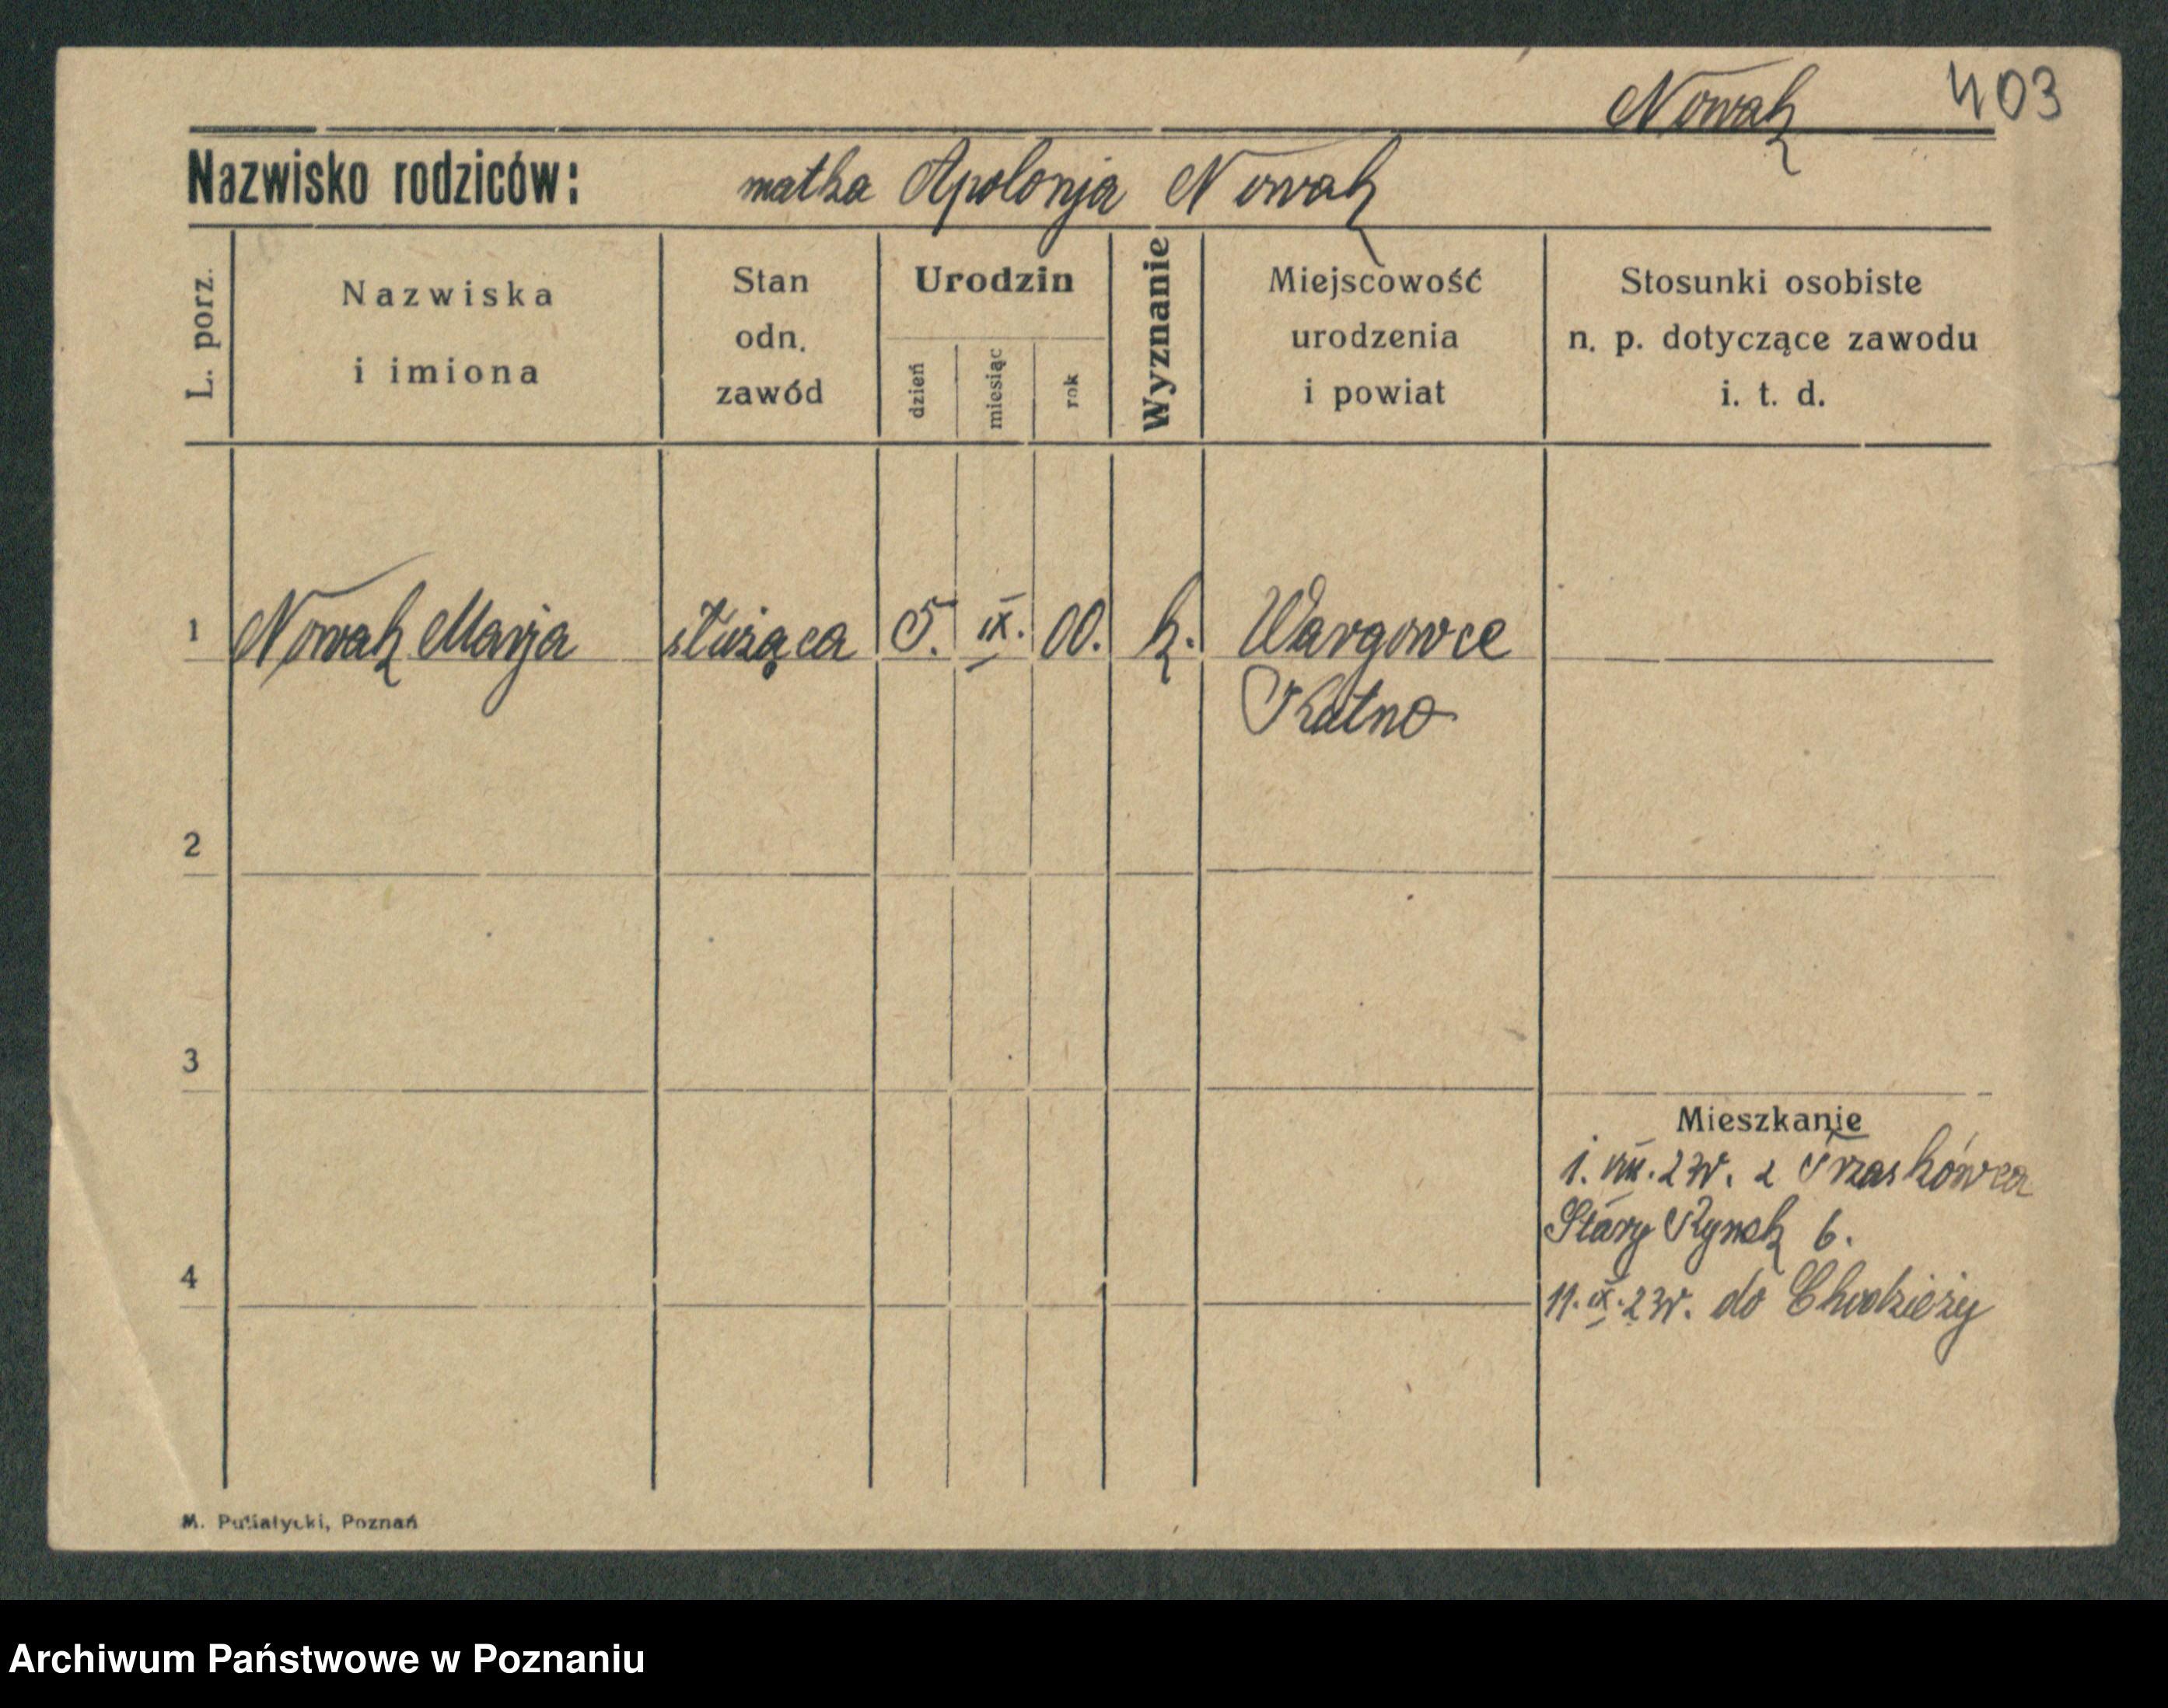 Nowak 403
Nazwisko rodziców: matka Apolonja Nowak
L. porz.
Nazwiska
i imiona
Stan
odn.
zawód
Urodzin
dzień
miesiąc
rok
Wyznanie
Miejscowość
urodzenia
i powiat
Stosunki osobiste
n. p. dotyczące zawodu
i. t. d.
1 Nowak Marja służąca 5. IX. 00. k. Wargowce
Kutno
2
3
Mieszkanie
1. VIII. 23r. z
Stary Rynek 6.
4
11. IX. 23r. do Chodzieży
M. Putiatycki, Poznań
Archiwum Państwowe w Poznaniu